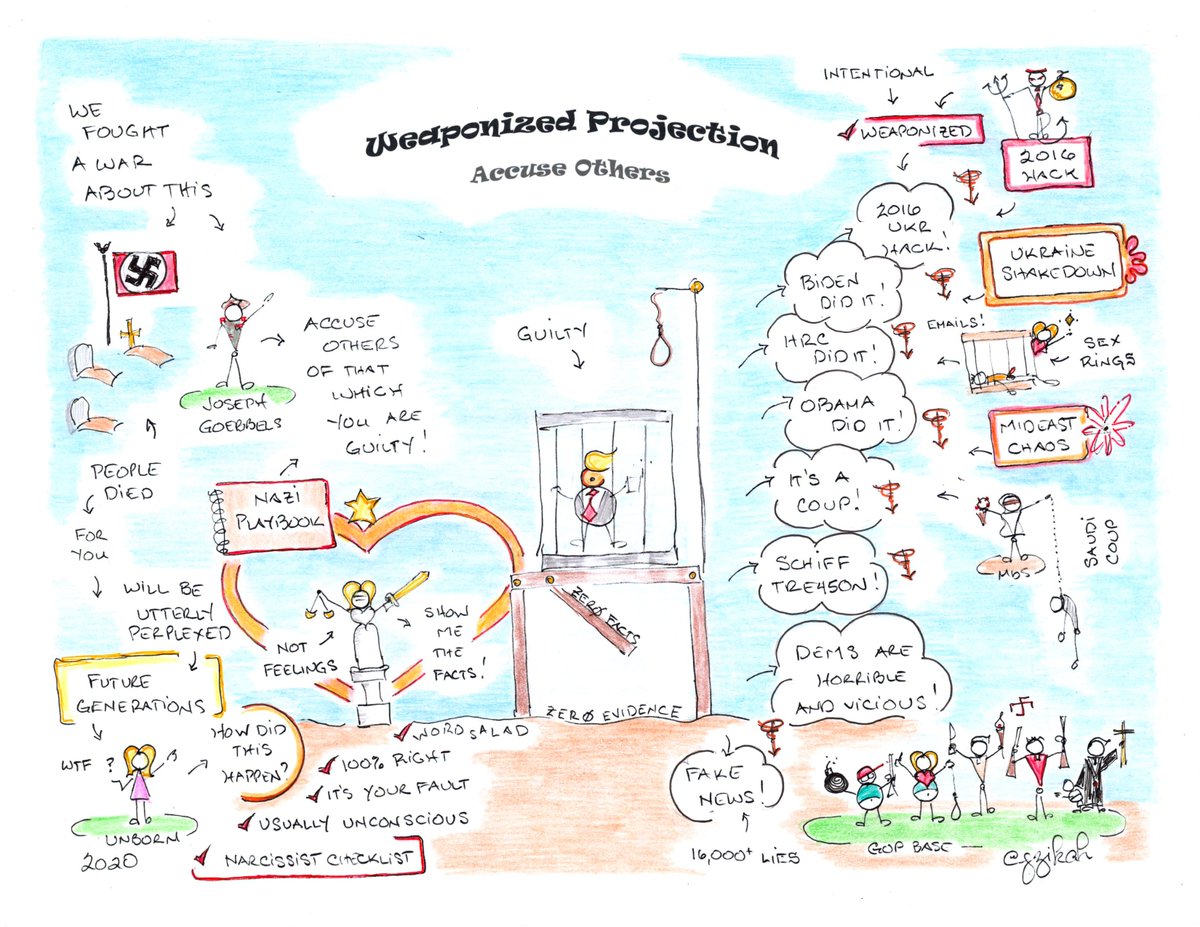 Weaponized Projection
Accuse Others
WE
FOUGHT
A WAR
ABOUT THIS
JOSEPH
GOEBBELS
ACCUSE
OTHERS
OF THAT
WHICH
YOU ARE
GUILTY!
PEOPLE
DIED
FOR
YOU
WILL BE
UTTERLY
PERPLEXED
FUTURE
GENERATIONS
WTF?
UNBORN
2020
HOW DID
THIS
HAPPEN?
NAZI
PLAYBOOK
NOT
FEELINGS
SHOW
ME
THE
FACTS!
WORD SALAD
100% RIGHT
IT'S YOUR FAULT
USUALLY UNCONSCIOUS
NARCISSIST CHECKLIST
GUILTY
ZERØ FACTS
ZERØ EVIDENCE
INTENTIONAL
WEAPONIZED
2016
HACK
2016
UKR
HACK!
UKRAINE
SHAKEDOWN
BIDEN
DID IT!
EMAILS!
HRC
DID IT!
SEX
RINGS
OBAMA
DID IT!
MIDEAST
CHAOS
IT'S A
COUP!
MbS
SAUDI
COUP
SCHIFF
TRE45ON!
DEMS ARE
HORRIBLE
AND VICIOUS!
FAKE
NEWS!
16,000+ LIES
GOP BASE